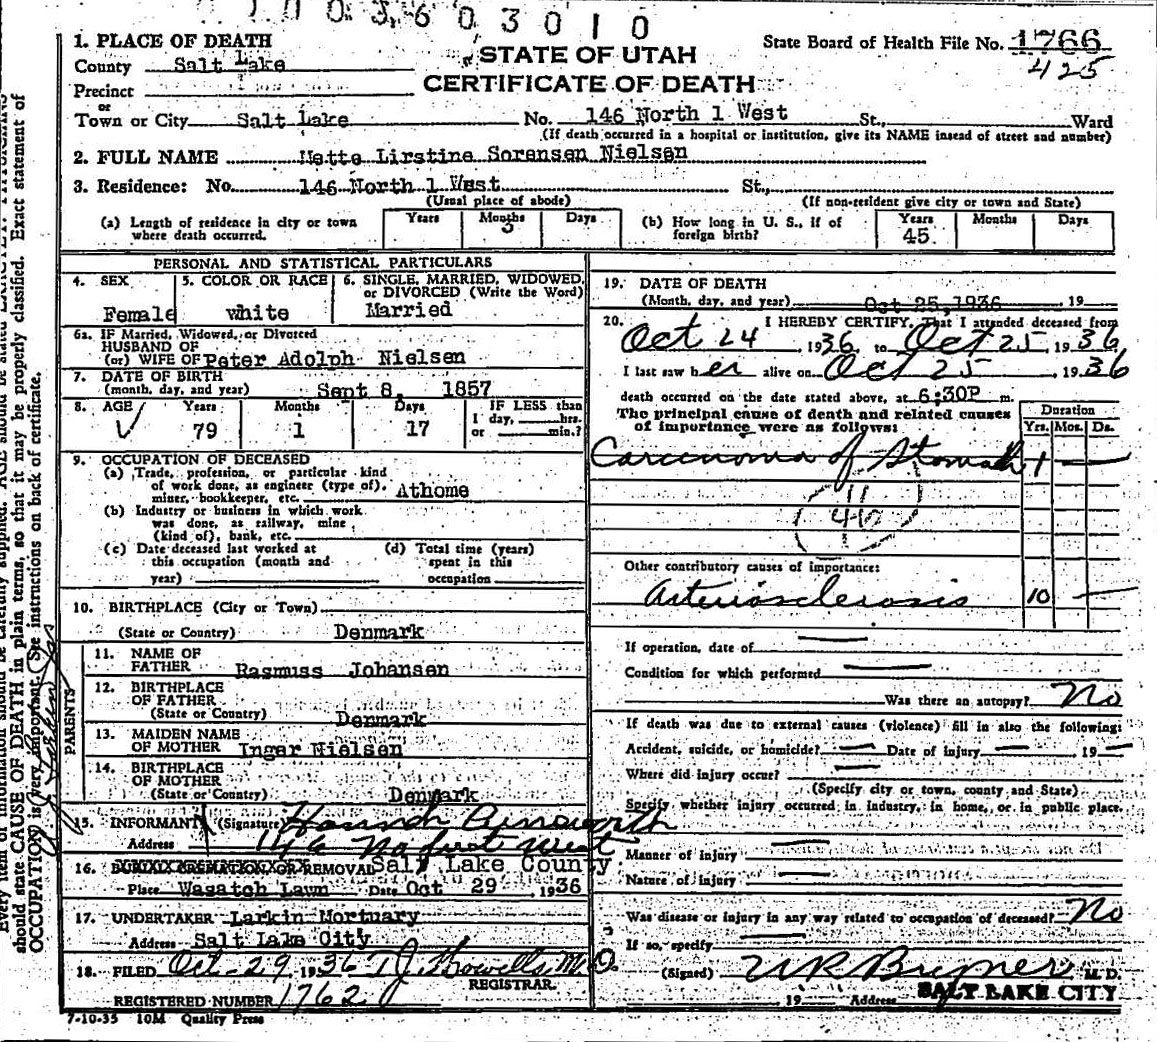 1 0 0 3 6 0 3 0 1 0
1. PLACE OF DEATH
STATE OF UTAH
State Board of Health File No. 1766
County Salt Lake
425
CERTIFICATE OF DEATH
Precinct
or
Town or City Salt Lake No. 146 North 1 West St., Ward
(If death occurred in a hospital or institution, give its NAME instead of street and number)
2. FULL NAME Mette Lirstine Sorensen Nielsen
3. Residence: No. 146 North 1 West St.,
(Usual place of abode) (If non-resident give city or town and State)
(a) Length of residence in city or town where death occurred. Years Months 3 Days
(b) How long in U. S., if of foreign birth? Years 45 Months Days
PERSONAL AND STATISTICAL PARTICULARS
4. SEX Female
5. COLOR OR RACE white
6. SINGLE, MARRIED, WIDOWED, or DIVORCED (Write the Word) Married
6a. IF Married, Widowed, or Divorced
HUSBAND OF
(or) WIFE OF Peter Adolph Nielsen
7. DATE OF BIRTH
(month, day, and year) Sept 8, 1857
8. AGE Years Months Days IF LESS than
1 day, hrs.
79 1 17 or min.?
9. OCCUPATION OF DECEASED
(a) Trade, profession, or particular kind
of work done, as engineer (type of),
miner, bookkeeper, etc. Athome
(b) Industry or business in which work
was done, as railway, mine
(kind of), bank, etc.
(c) Date deceased last worked at
this occupation (month and
year)
(d) Total time (years)
spent in this
occupation
10. BIRTHPLACE (City or Town)
(State or Country) Denmark
PARENTS
11. NAME OF
FATHER Rasmuss Johansen
12. BIRTHPLACE
OF FATHER
(State or Country) Denmark
13. MAIDEN NAME
OF MOTHER Inger Nielsen
14. BIRTHPLACE
OF MOTHER
(State or Country) Denmark
15. INFORMANT (Signature) Hannah Ainsworth
Address 146 No first West
16. BURIAL CREMATION OR REMOVAL Salt Lake County
Place Wasatch Lawn Date Oct 29 1936
17. UNDERTAKER Larkin Mortuary
Address Salt Lake City
18. FILED Oct-29, 1936 T J Howells M.D.
REGISTRAR.
REGISTERED NUMBER 1762
7-10-35 10M Quality Press
19. DATE OF DEATH
(Month, day, and year) Oct 25, 1936 19
20. I HEREBY CERTIFY, That I attended deceased from
Oct 24 1936 to Oct 25, 1936
I last saw her alive on Oct 25 1936
death occurred on the date stated above, at 6:30P m.
The principal cause of death and related causes
of importance were as follows:
Duration
Yrs. Mos. Ds.
Carcinoma of Stomach 1 —
46
Other contributory causes of importance:
Arteriosclerosis 10 —
If operation, date of —
Condition for which performed —
Was there an autopsy? No
If death was due to external causes (violence) fill in also the following:
Accident, suicide, or homicide? — Date of injury — 19 —
Where did injury occur? —
(Specify city or town, county and State)
Specify whether injury occurred in industry, in home, or in public place.
Manner of injury —
Nature of injury —
Was disease or injury in any way related to occupation of deceased? No
If so, specify —
(Signed) M. D.
19 Address SALT LAKE CITY
should state CAUSE OF DEATH in plain terms, so that it may be properly classified. Exact statement of
OCCUPATION is very important. See instructions on back of certificate.